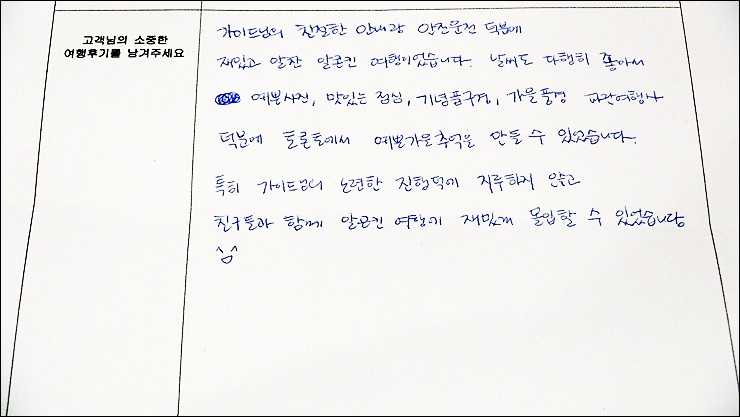 고객님의 소중한
여행후기를 남겨주세요
가이드님의 친절한 안내와 안전운전 덕분에
재밌고 알찬 알콘킨 여행이었습니다. 날씨도 다행히 좋아서
예쁜사진, 맛있는 점심, 기념품구경, 가을풍경 파란여행사
덕분에 토론토에서 예쁜가을추억을 만들 수 있었습니다.
특히 가이드님의 노련한 진행덕에 지루하지 않고
친구들과 함께 알곤킨 여행기 재밌게 몰입할 수 있었습니당
^^